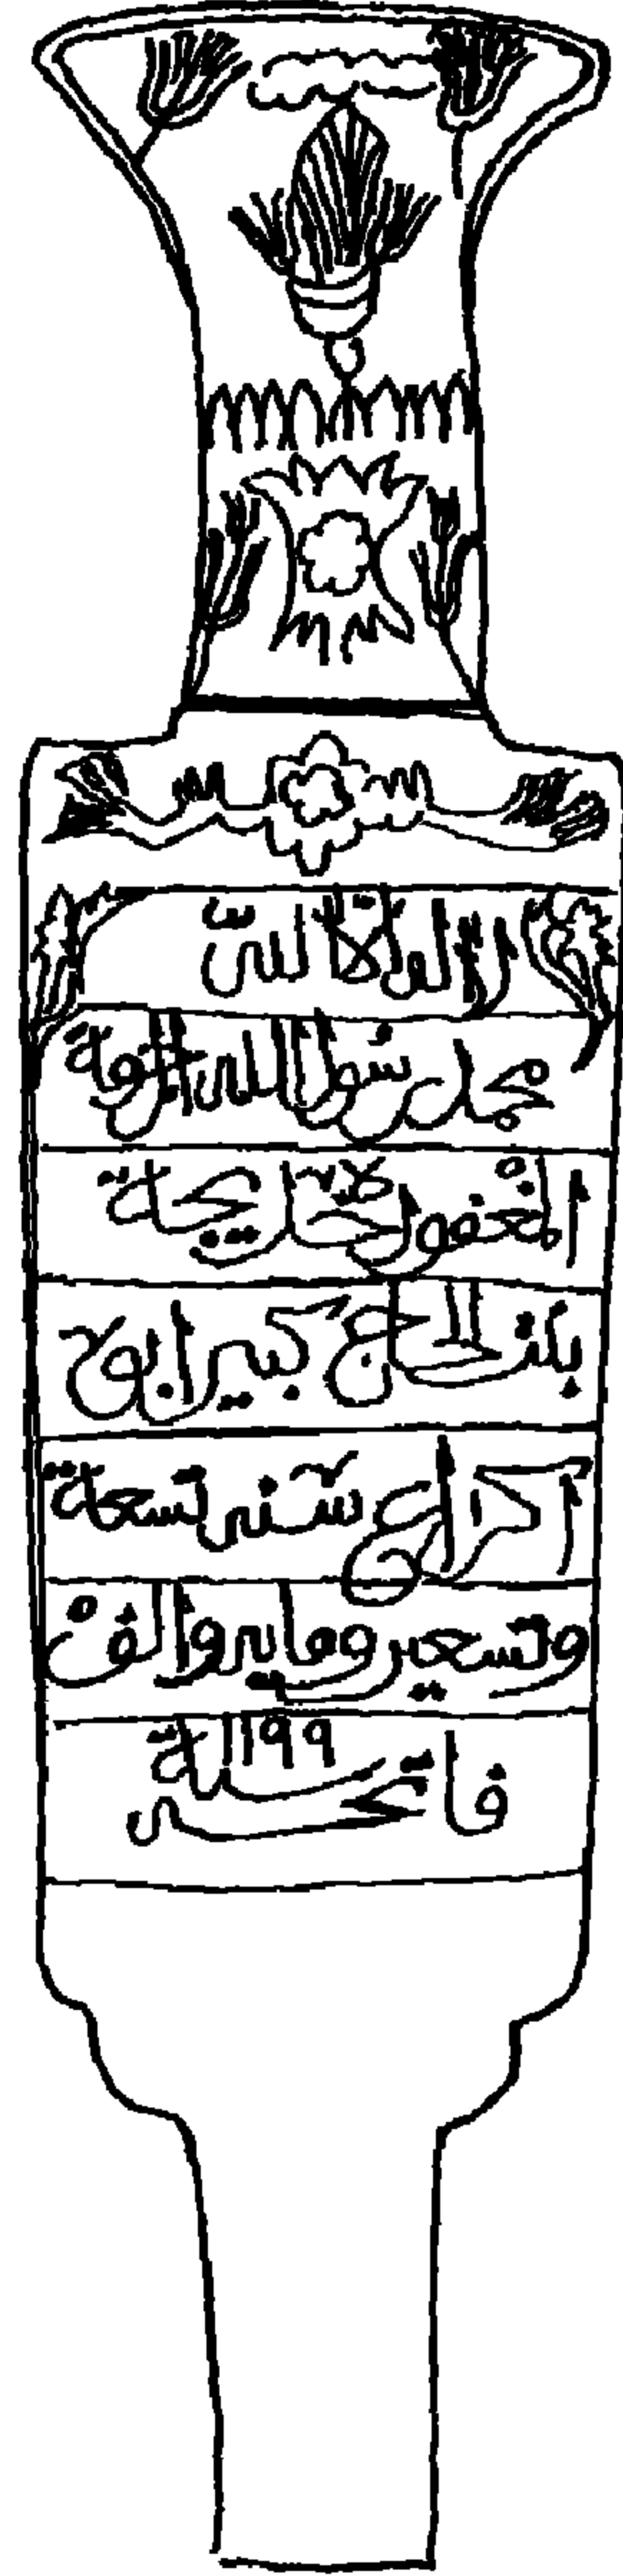 لا اله الا الله
محمد رسول الله المرحومة
المغفور لا خديجة
بنت الحاج كبير
سنه تسعة
وتسعين ومايه والف
١١٩٩
فاتحه